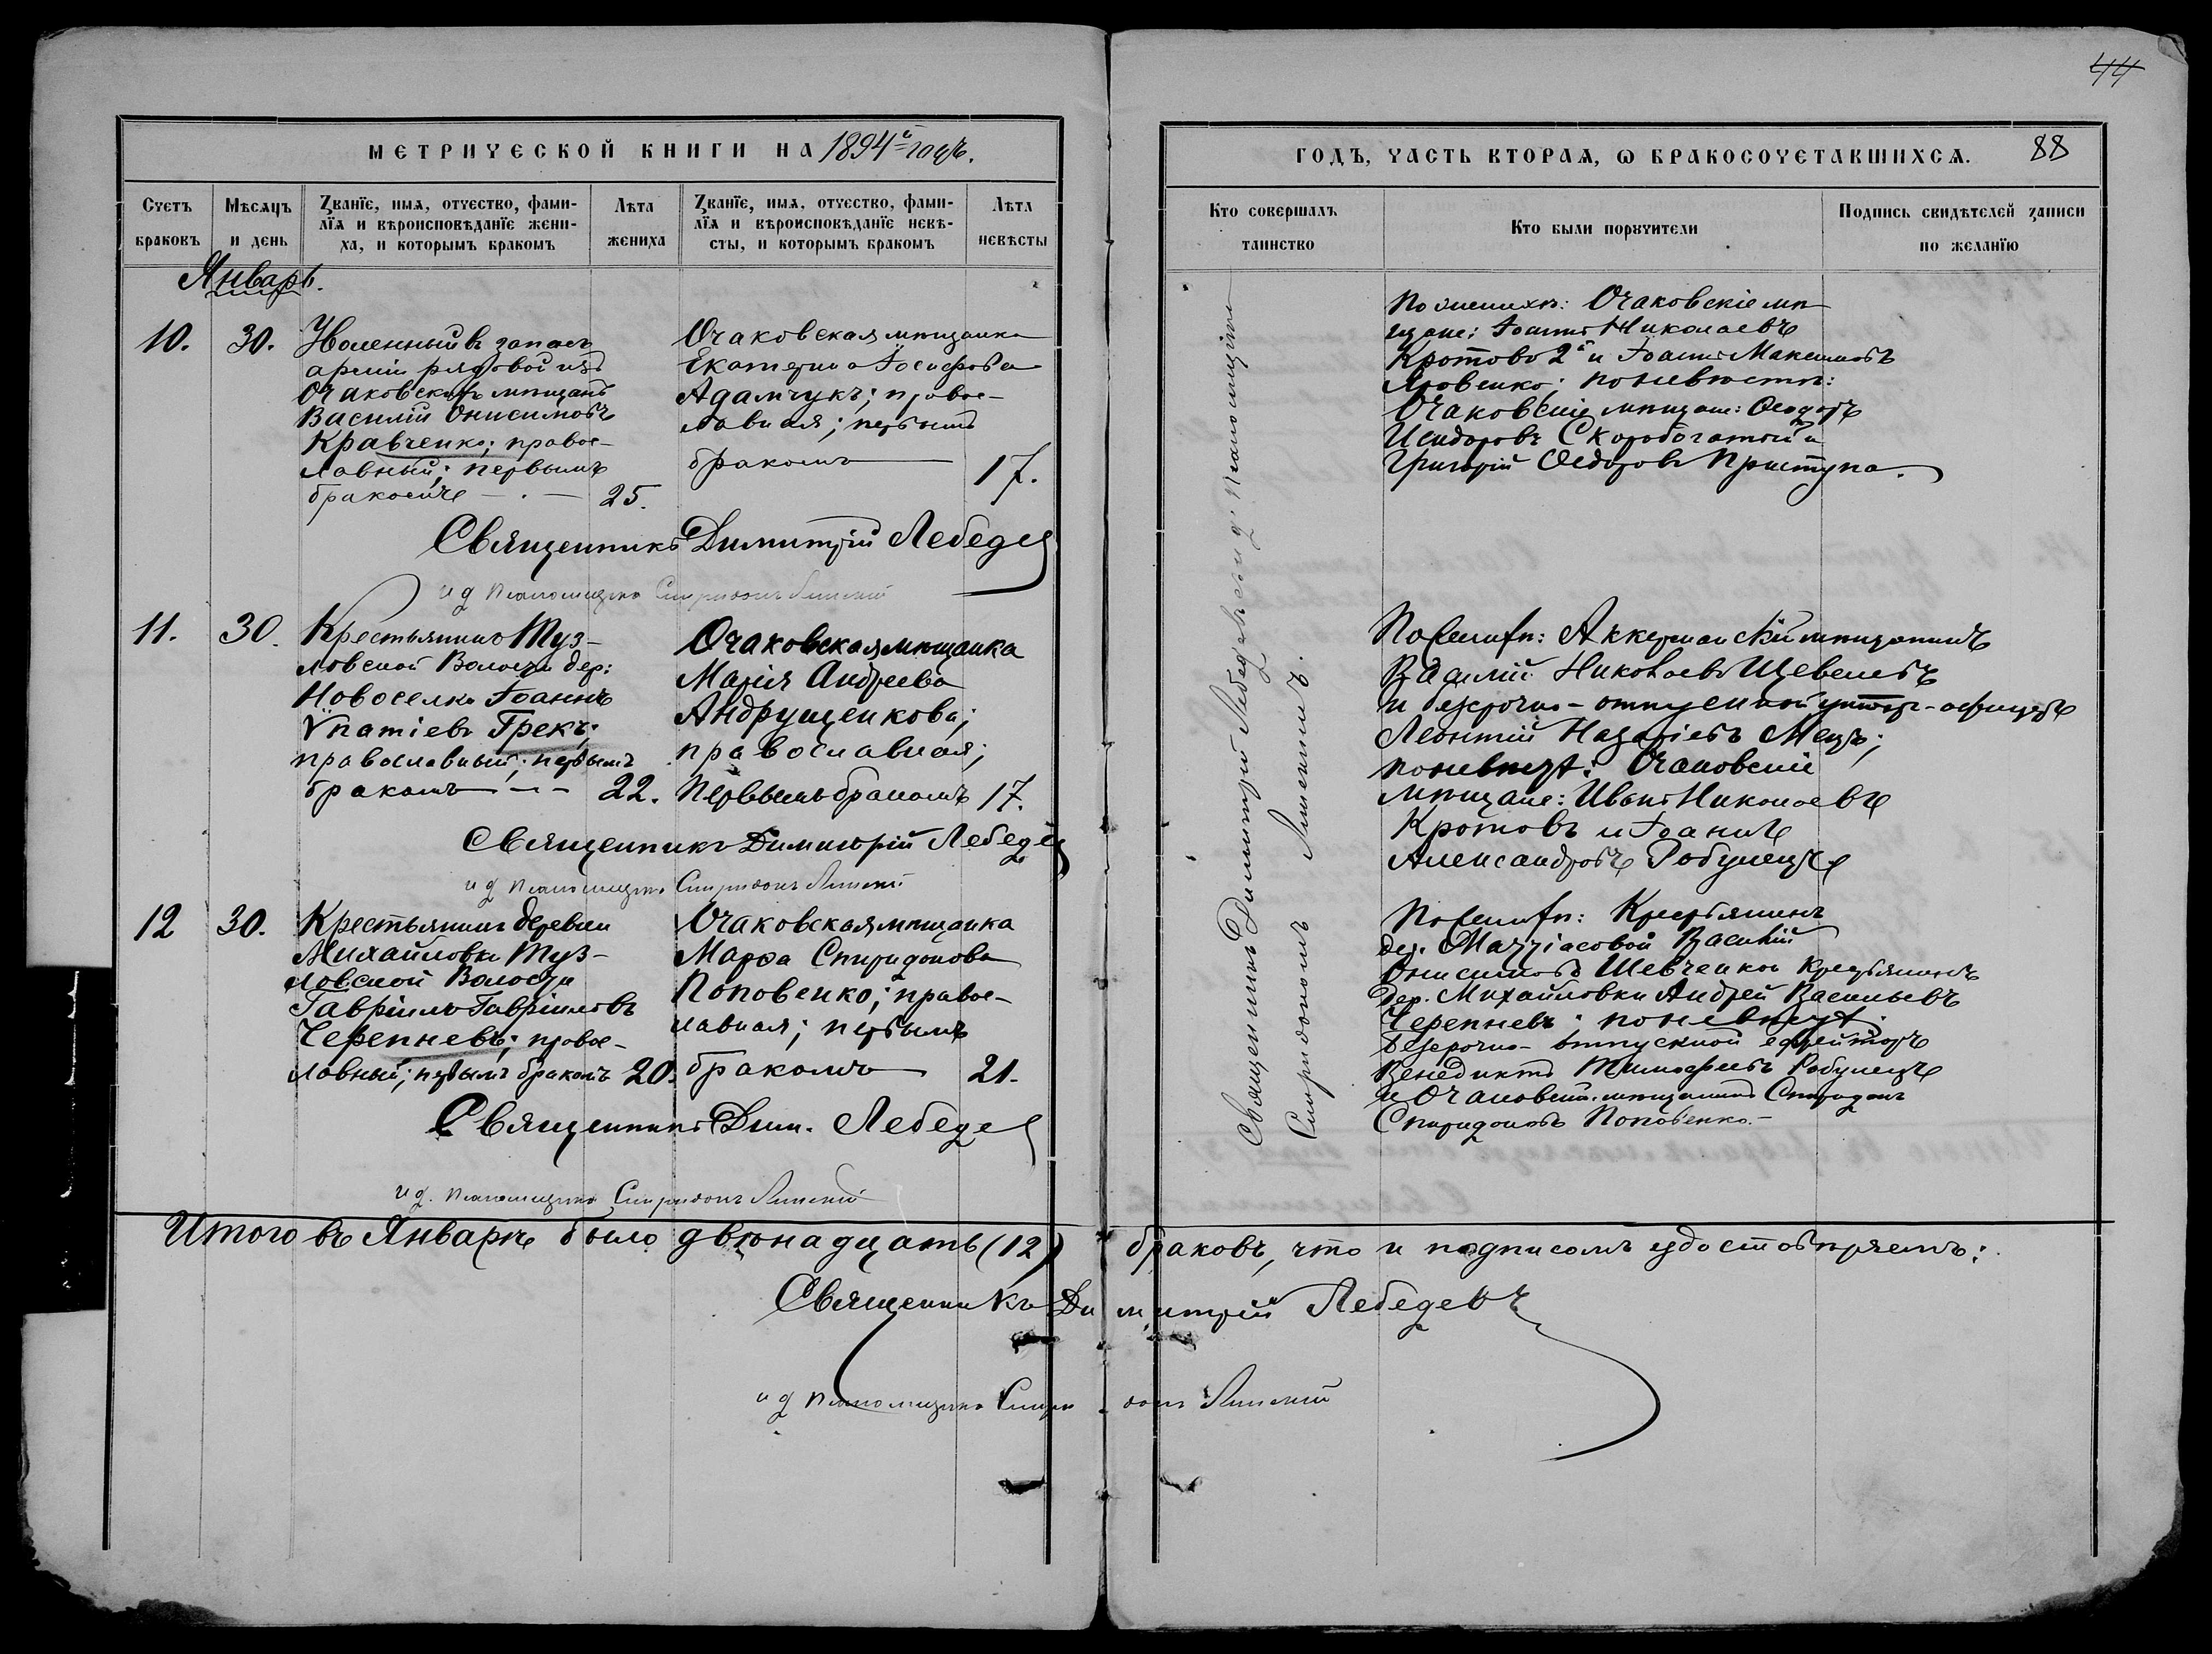 44
МЕТРИЧЕСКОЙ КНИГИ НА 1894й годъ.
Счетъ браковъ
Мѣсяцъ и день
Званїе, имя, отчество, фами-
лїя и вѣроисповѣданїе жени-
ха, и которымъ бракомъ
Лѣта жениха
Званїе, имя, отчество, фами-
лїя и вѣроисповѣданїе невѣ-
сты, и которымъ бракомъ
Лѣта невѣсты
Январь.
10.
30.
въ запасъ
арміи рядовой изъ
Очаковскихъ мѣщанъ
Василій Онисимовъ
Кравченко; правос-
лавный; первымъ
бракомъ
25.
Очаковская мѣщанка
Екатерина Іосифова
Адамчукъ; правос-
лавная; первымъ
бракомъ
17.
Священникъ Димитрій Лебедев
и д псаломщика Спиридонъ
11.
30.
Крестьянинъ Туз-
ловской Волости дер:
Новоселки Іоаннъ
Ѵпатіевъ Грекъ;
православный; первымъ
бракомъ
22.
Очаковская мѣщанка
Марія Андреева
Андрущенкова;
православная;
первымъ бракомъ
17.
Священникъ Димитрій Лебедев
и д псаломщика Спиридонъ
12
30.
Крестьянинъ деревни
Михайловки Туз-
ловской Волости
Гавріилъ Гавріиловъ
Черепневъ; правос-
лавный; первымъ бракомъ
20.
Очаковская мѣщанка
Марѳа Спиридонова
Поповенко; правос-
лавная; первымъ
бракомъ
21.
Священникъ Дим. Лебедев
и д. псаломщика Спиридонъ
ГОДЪ, ЧАСТЬ ВТОРАЯ, Ѡ БРАКОСОЧЕТАВШИХСЯ.
88
Кто совершалъ таинство
Кто были поручители
Подпись свидѣтелей записи по желанїю
Священникъ Димитрій Лебедевъ съ и. д. псаломщика
Спиридономъ
По женихѣ: Очаковскіе мѣ-
щане: Іоаннъ Николаевъ
Кротовъ 2й и Іоаннъ Максимовъ
Яровенко; по невѣстѣ:
Очаковскіе мѣщане: Ѳеодоръ
Исидоровъ Скоробогатый и
Григорій Ѳедоровъ Приступа.
По женихѣ: Аккерманскій мѣщанинъ
Василій Николаевъ
и безсрочно-отпускной унтеръ-офицеръ
Леонтій Назаріевъ
по невѣстѣ: Очаковскіе
мѣщане: Иванъ Николаевъ
Кротовъ и Іоаннъ
Александровъ Робулецъ
По женихѣ: Крестьянинъ
дер. Василій
Онисимовъ Шевченко и Крестьянинъ
дер. Михайловки Андрей Васильевъ
Черепневъ; по невѣстѣ:
безсрочно-отпускной ефрейторъ
Венедиктъ Тимофеевъ Робулецъ
и Очаковскій мѣщанинъ Спиридонъ
Спиридоновъ Поповенко.
Итого въ Январѣ было двѣнадцать (12) браковъ, что и подписомъ удостовѣряемъ:
Священникъ Димитрій Лебедевъ
и д псаломщика Спиридонъ